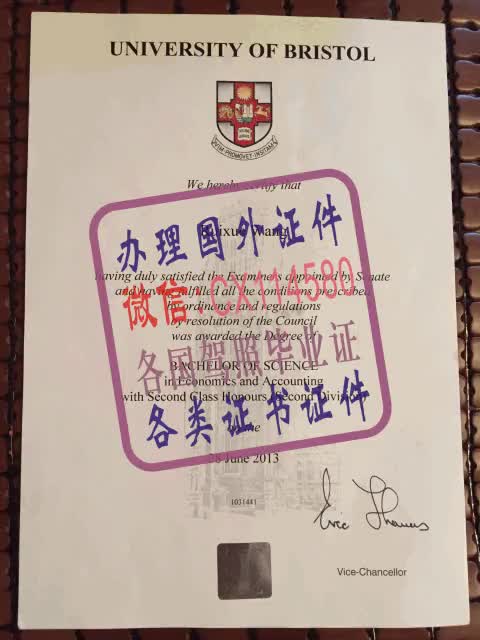 UNIVERSITY OF BRISTOL
VIM PROMOVET INSITAM
We hereby certify that
Ruixue Wang
办理国外证件
having duly satisfied the Examiners appointed by Senate
and having fulfilled all the conditions prescribed
微信:GX114580
by ordinance and regulations
by resolution of the Council
was awarded the Degree of
各国驾照毕业证
BACHELOR OF SCIENCE
in Economics and Accounting
with Second Class Honours (Second Division)
各类证书证件
on the
28 June 2013
1031441
Eric Thomas
Vice-Chancellor